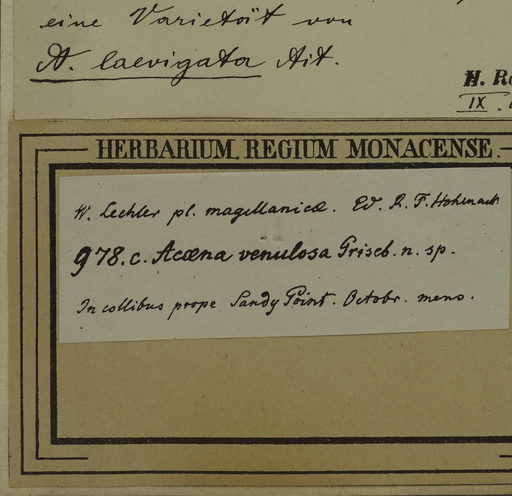 eine Varietät von
A. laevigata Ait.
H. R
IX.
HERBARIUM REGIUM MONACENSE.
W. Lechler pl. magellanicæ. Ed. R. F. Hohenack
978.c. Acæna venulosa Griseb. n. sp.
In collibus prope Sandy Point. Octobr. mens.